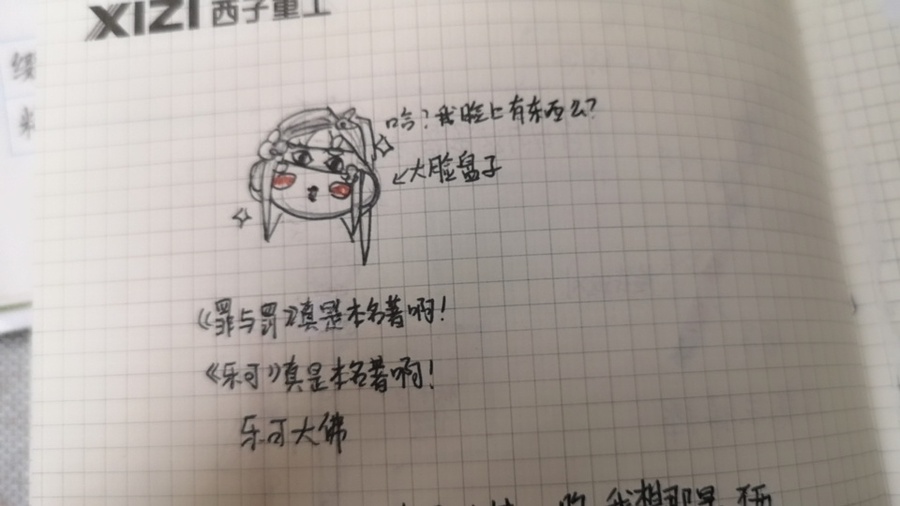 XIZI 西子重工
哈？我脸上有东西么？
←大脸盘子
《罪与罚》真是本名著啊！
《乐可》真是本名著啊！
乐可大佛
我想那是